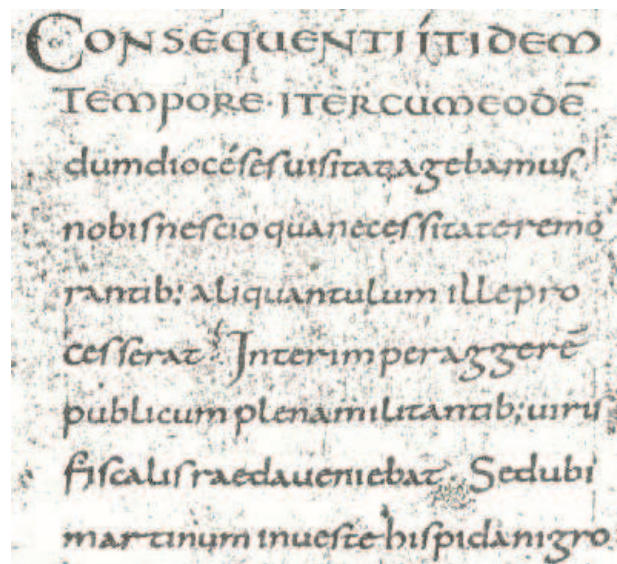 CONSEQUENTI ÍTIDEM
TEMPORE· ITERCUMEODĒ
dumdiocéses uisitat agebamus,
nobis nescio qua necessitate remo
rantib; aliquantulum ille pro
cesserat. Interim per aggerē
publicum plena militantib; uiris
fiscalis raeda ueniebat. Sed ubi
martinum in ueste hispida nigro